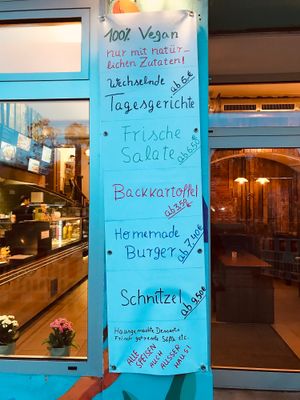 100% Vegan
nur mit natür-
lichen Zutaten!
Wechselnde
ab 6€
Tagesgerichte
Frische
Salate ab 6.50
Backkartoffel
ab 3.50
Homemade
Burger ab 7.40€
Schnitzel
ab 9.50€
Hausgemachte Desserts
Frisch gepresste Säfte etc.
ALLE
SPEISEN
AUCH
AUSSER
HAUS!